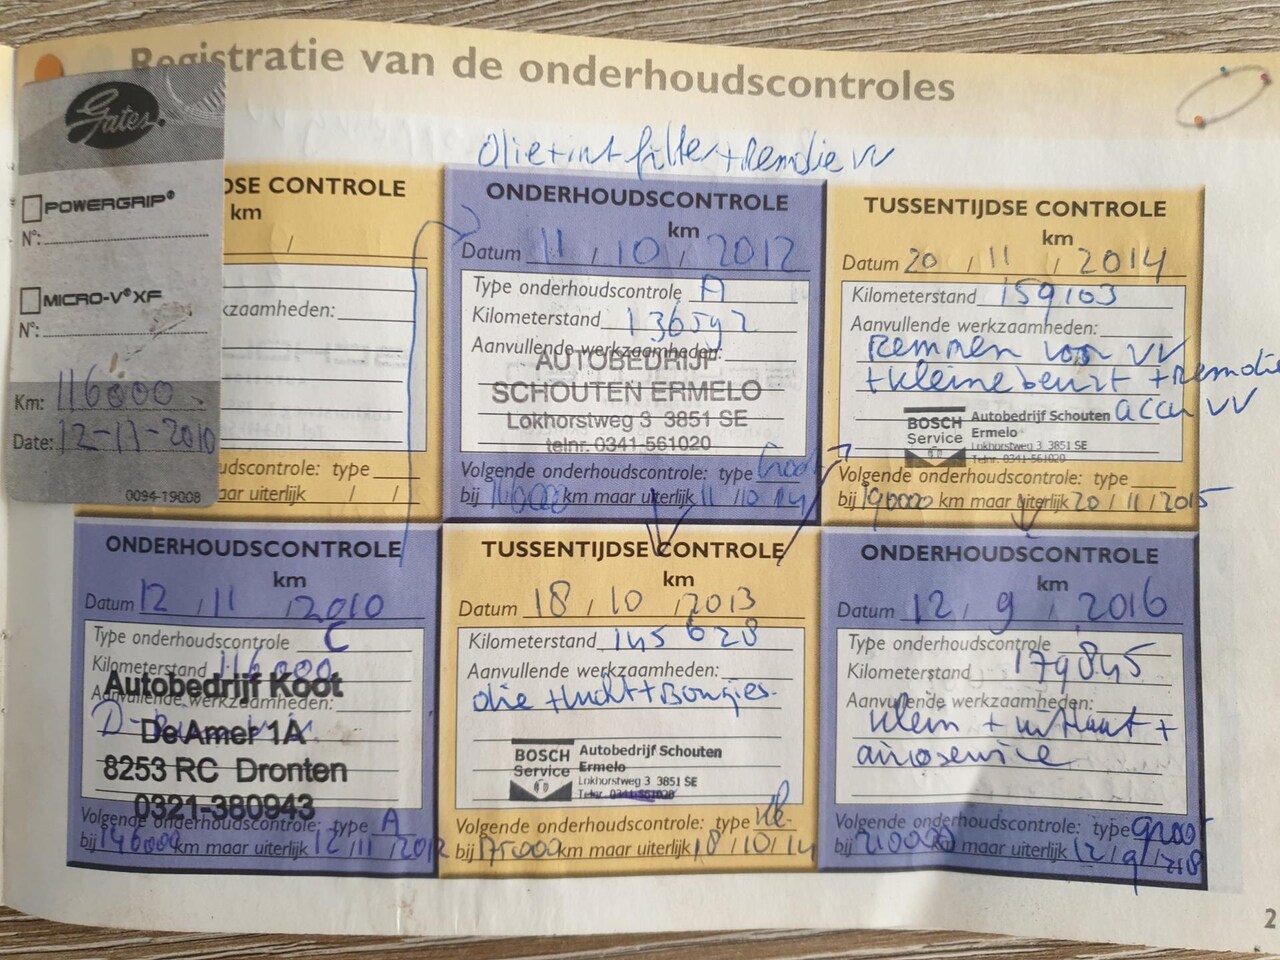 Registratie van de onderhoudscontroles
Gates
POWERGRIP®
N°:
MICRO-V® XF
N°:
Km: 116000
Date: 12-11-2010
0094-19008
DSE CONTROLE
km
/
kzaamheden:
udscontrole: type
aar uiterlijk / /
Olie+int filter+Remolie VV
ONDERHOUDSCONTROLE
km
Datum 11 / 10 / 2012
Type onderhoudscontrole A
Kilometerstand 136592
Aanvullende werkzaamheden:
AUTOBEDRIJF
SCHOUTEN ERMELO
Lokhorstweg 3 3851 SE
telnr. 0341-561020
Volgende onderhoudscontrole: type Groot
bij 166000 km maar uiterlijk 11 / 10 / 14
TUSSENTIJDSE CONTROLE
km
Datum 20 / 11 / 2014
Kilometerstand 159103
Aanvullende werkzaamheden:
Remmen voor VV
+kleine beurt + Remolie
accu VV
BOSCH
Service
Autobedrijf Schouten
Ermelo
Lokhorstweg 3 3851 SE
Telnr. 0341-561020
Volgende onderhoudscontrole: type
bij 190000 km maar uiterlijk 20 / 11 / 2015
ONDERHOUDSCONTROLE
km
Datum 12 / 11 / 2010
Type onderhoudscontrole C
Kilometerstand 116000
Aanvullende werkzaamheden:
Autobedrijf Koot
De Amer 1A
8253 RC Dronten
0321-380943
Volgende onderhoudscontrole: type A
bij 146000 km maar uiterlijk 12 / 11 / 2012
TUSSENTIJDSE CONTROLE
km
Datum 18 / 10 / 2013
Kilometerstand 145628
Aanvullende werkzaamheden:
olie + lucht + Bougies
BOSCH
Service
Autobedrijf Schouten
Ermelo
Lokhorstweg 3 3851 SE
Telnr. 0341-561020
Volgende onderhoudscontrole: type kl.
bij 175000 km maar uiterlijk 18 / 10 / 14
ONDERHOUDSCONTROLE
km
Datum 12 / 9 / 2016
Type onderhoudscontrole
Kilometerstand 179845
Aanvullende werkzaamheden:
klein + uitlaat +
aircoservice
Volgende onderhoudscontrole: type groot
bij 210000 km maar uiterlijk 12 / 9 / 2018
2